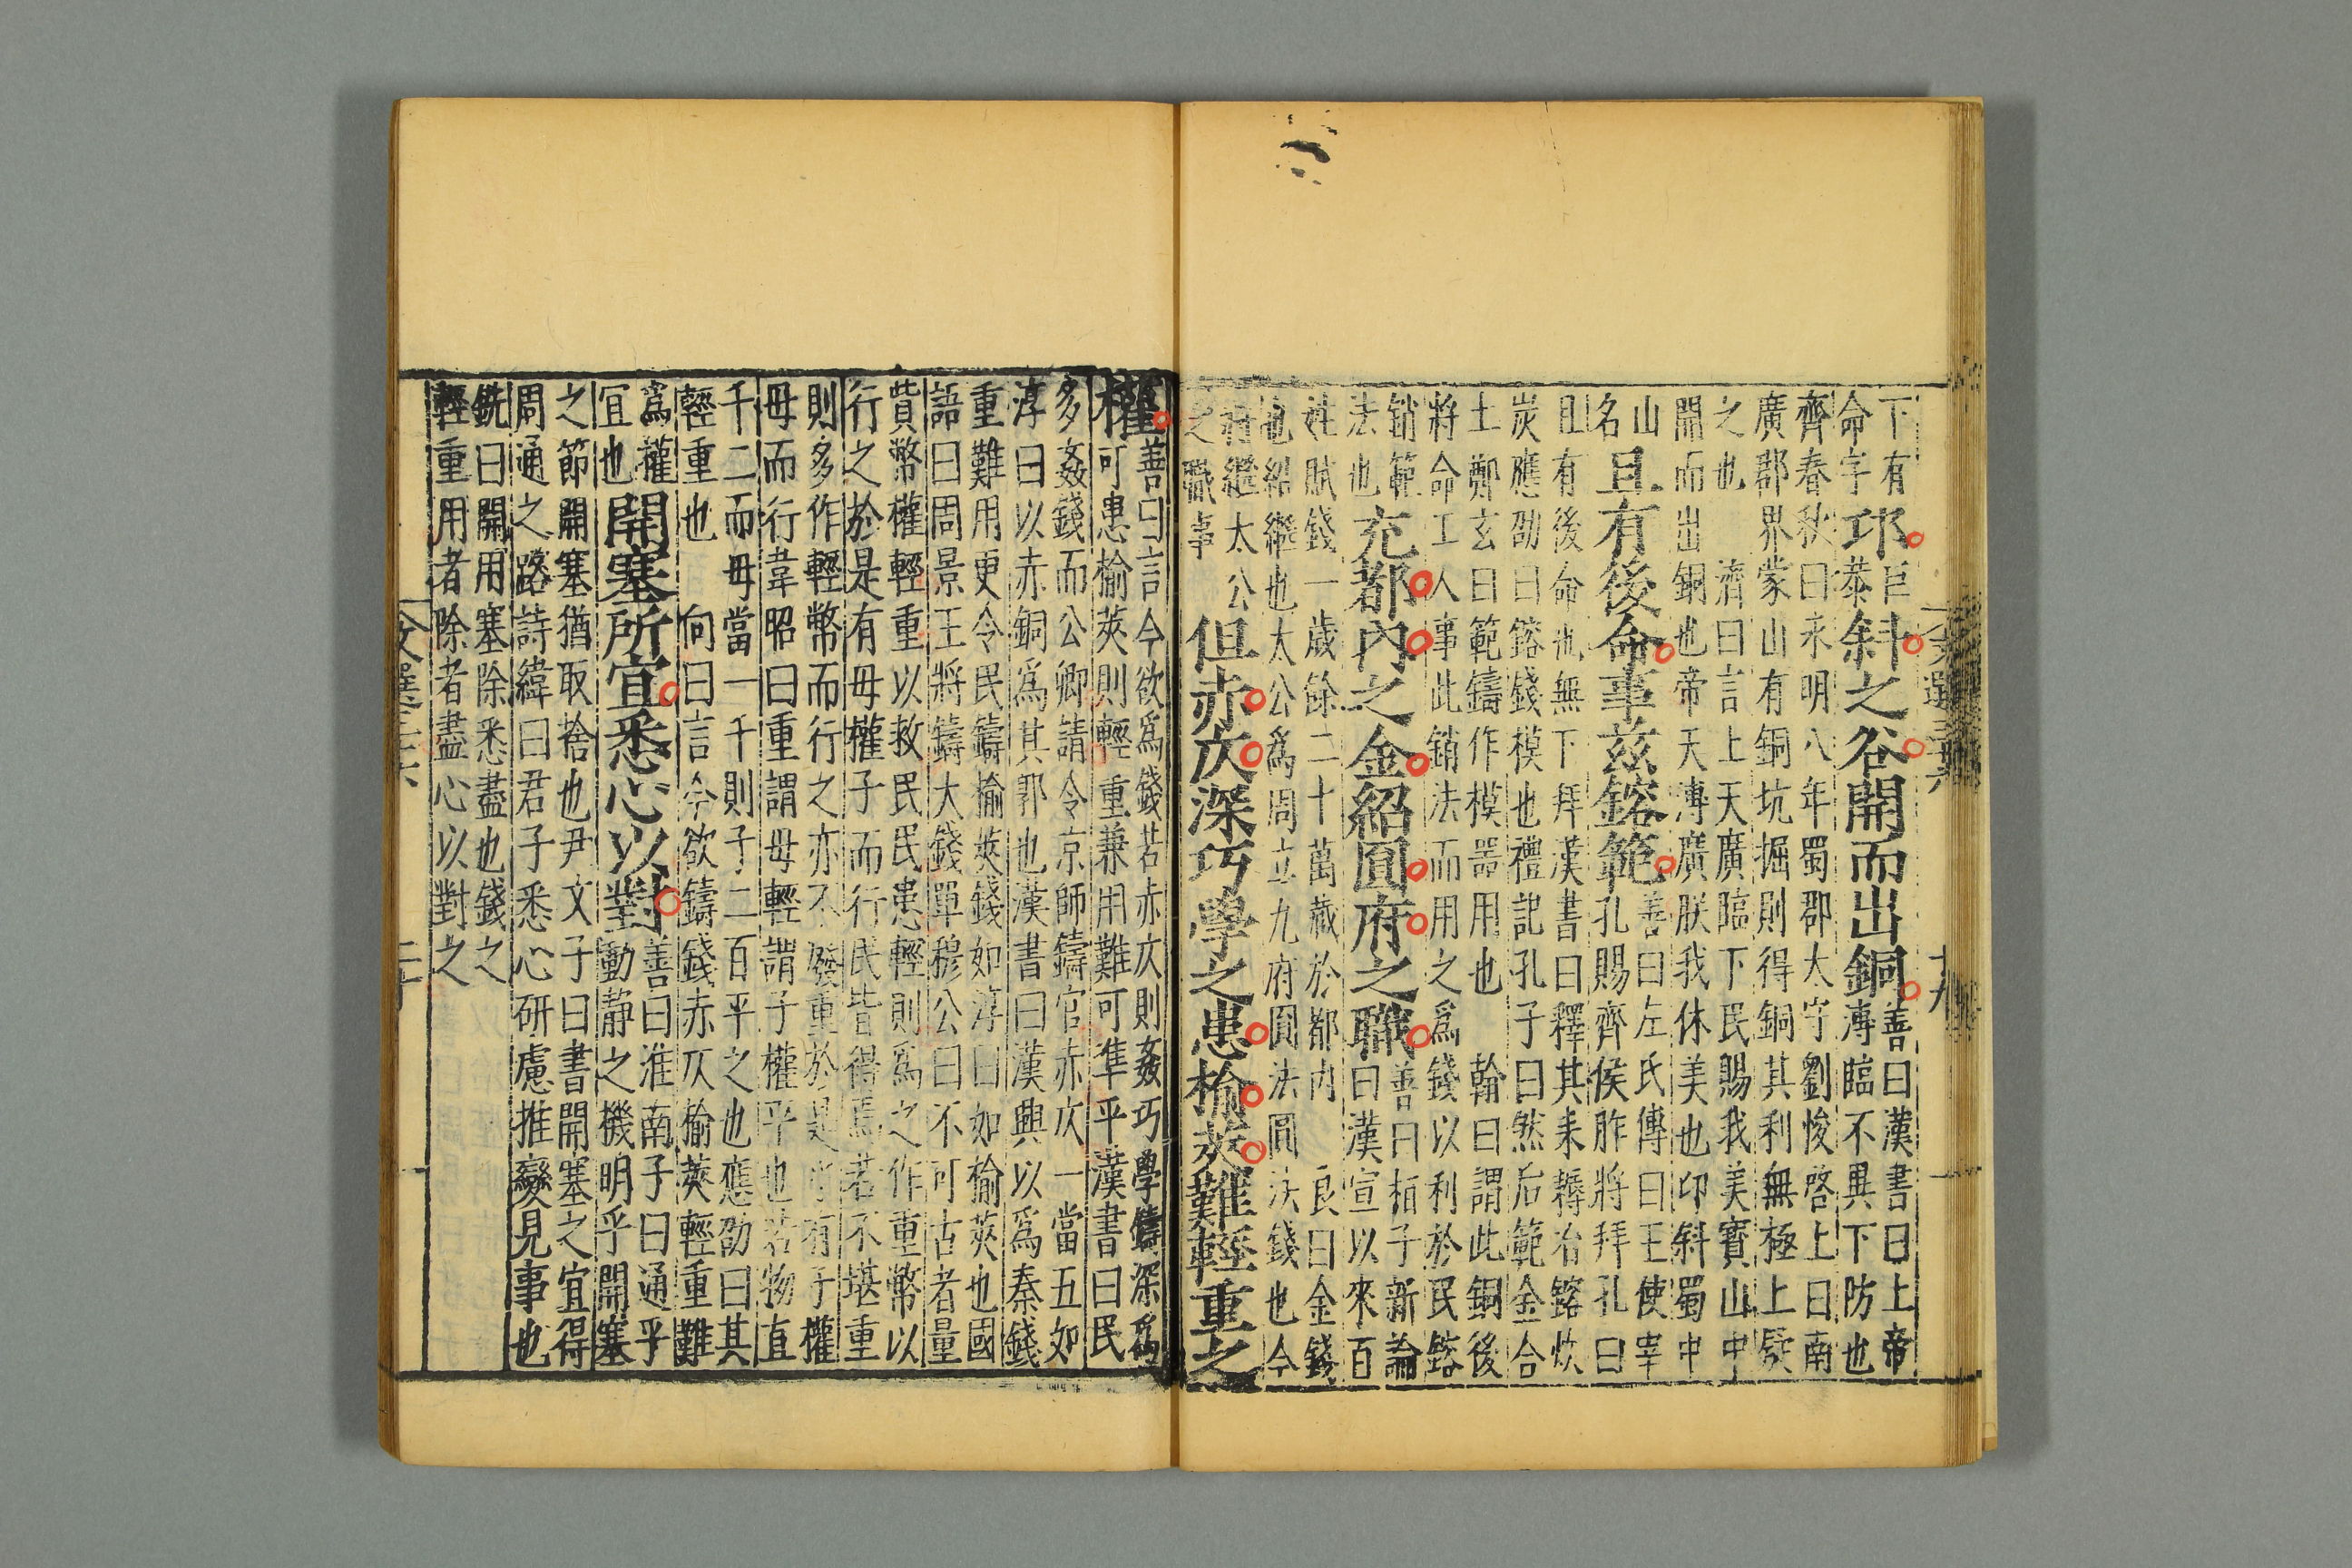 下有
命字
邛
巨
恭
斜之谷開而出銅
善曰漢書曰上帝
溥臨不異下防也
齊春秋曰永明八年蜀郡太守劉悛啓上曰南
廣郡界蒙山有銅坑掘則得銅其利無極上從
之也　濟曰言上天廣臨下民賜我美寶山中
開而出銅也帝天溥廣朕我休美也卬斜蜀中
山
名
且有後命事茲鎔範
善曰左氏傳曰王使宰
孔賜齊侯胙將拜孔曰
且有後命也無下拜漢書曰釋其耒耨冶鎔炊
炭應劭曰鎔錢模也禮記孔子曰然后範金合
土鄭玄曰範鑄作模噐用也　翰曰謂此銅後
將命工人事此銷法而用之爲錢以利於民鎔
銷範
法也
充都內之金紹圓府之職
善曰栢子新論
曰漢宣以來百
姓賦錢一歲餘二十萬藏於都內　良曰金錢
也紹繼也太公爲周立九府圓法圓法錢也今
將繼太公
之職事
但赤仄深巧學之患榆莢難輕重之
文選
十九
權
善曰言今欲爲錢若赤仄則姦巧學鑄深爲
可患榆莢則輕重兼用難可準平漢書曰民
多姦錢而公卿請令京師鑄官赤仄一當五如
淳曰以赤銅爲其郭也漢書曰漢興以爲秦錢
重難用更令民鑄榆莢錢如淳曰如榆莢也國
語曰周景王將鑄大錢單穆公曰不可古者量
貲幣權輕重以救民民患輕則爲之作重幣以
行之於是有母權子而行民皆得焉若不堪重
則多作輕幣而行之亦不廢重於是乎有子權
母而行韋昭曰重謂母輕謂子權平也若物直
千二而母當一千則子二百平之也應劭曰其
輕重也　向曰言今欲鑄錢赤仄榆莢輕重難
爲權
宜也
開塞所宜悉心以對
善曰淮南子曰通乎
動靜之機明乎開塞
之節開塞猶取捨也尹文子曰書開塞之宜得
周通之路詩緯曰君子悉心研慮推變見事也
銑曰開用塞除悉盡也錢之
輕重用者除者盡心以對之
文選三六
二十